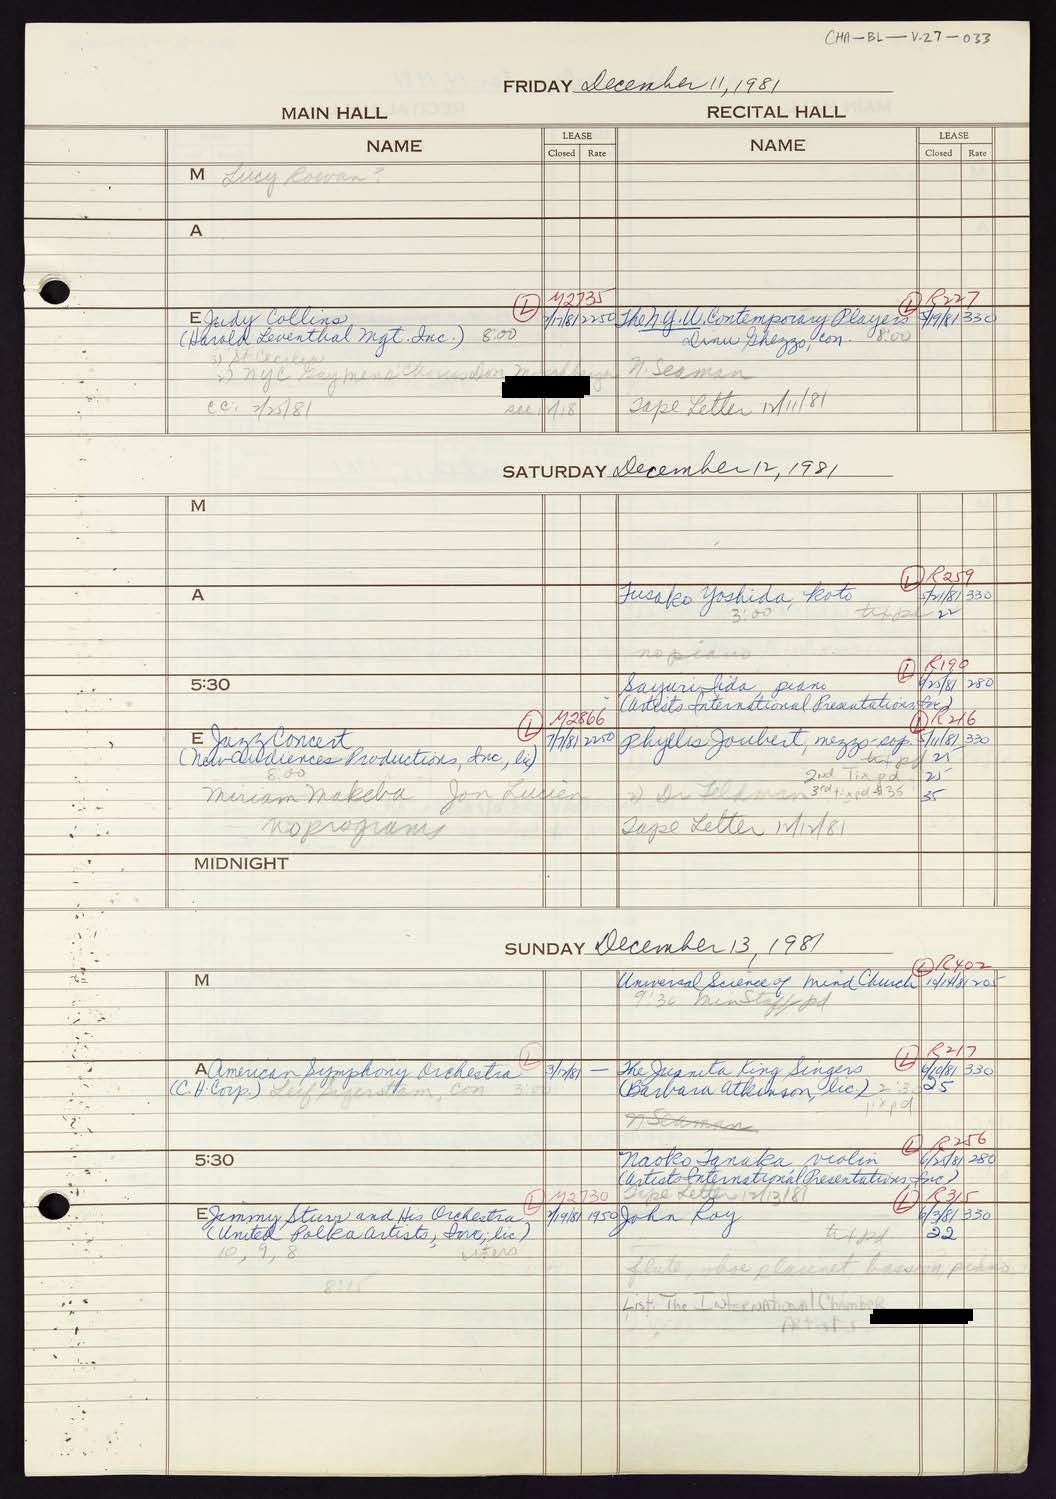 CHA-BL-V.27-033
FRIDAY December 11, 1981
MAIN HALL
RECITAL HALL
NAME
LEASE
Closed Rate
NAME
LEASE
Closed Rate
M Lucy Rowan?
A
L M2735
L R227
E Judy Collins 2250
The N.Y.U. Contemporary Players 330
(Harold Leventhal Mgt. Inc.) 8:00
Dinu Ghezzo, con. 8:00
1) St Cecilia
2) NYC Gay mens Chorus Don
N. Seaman
cc:
see
Tape Letter 12/11/81
SATURDAY December 12, 1981
M
L R259
A
Fusako Yoshida, koto 5/21/81 330
3:00 tix pd 22
no piano
L R190
5:30
Sayuri Iida piano 280
(Artists International Presentations, Inc)
L M2866
L R216
E Jazz Concert 7/7/81 2250
Phyllis Joubert, mezzo-sop. 5/11/81 330
(New Audiences Productions, Inc, lic)
tix pd 25
8:00
2nd Tix pd 25
Miriam Makeba Jon Lucien
2) Dr Feldman 3rd tix pd $35 35
no programs
Tape Letter 12/12/81
MIDNIGHT
SUNDAY December 13, 1981
L R402
M
Universal Science of Mind Church 10/14/81 205
9:30 Min Staff pd
L
L R217
A American Symphony Orchestra 3/12/81 —
The Juanita King Singers 330
(C.H. Corp.) Leif Segerstam, con 3:00
(Barbara Atkinson, lic) 2:30 25
tix pd
N Seaman
L R256
5:30
Naoko Tanaka violin 6/25/81 280
(Artists International Presentations, Inc)
L M2730
Tape Letter 12/13/81
L R315
E Jimmy Sturr and His Orchestra 1950
John Roy 330
(United Polka Artists, Inc, lic)
tix pd 22
10, 9, 8
flute, oboe clarinet bassoon, piano
8:15
List: The International Chamber
Artists